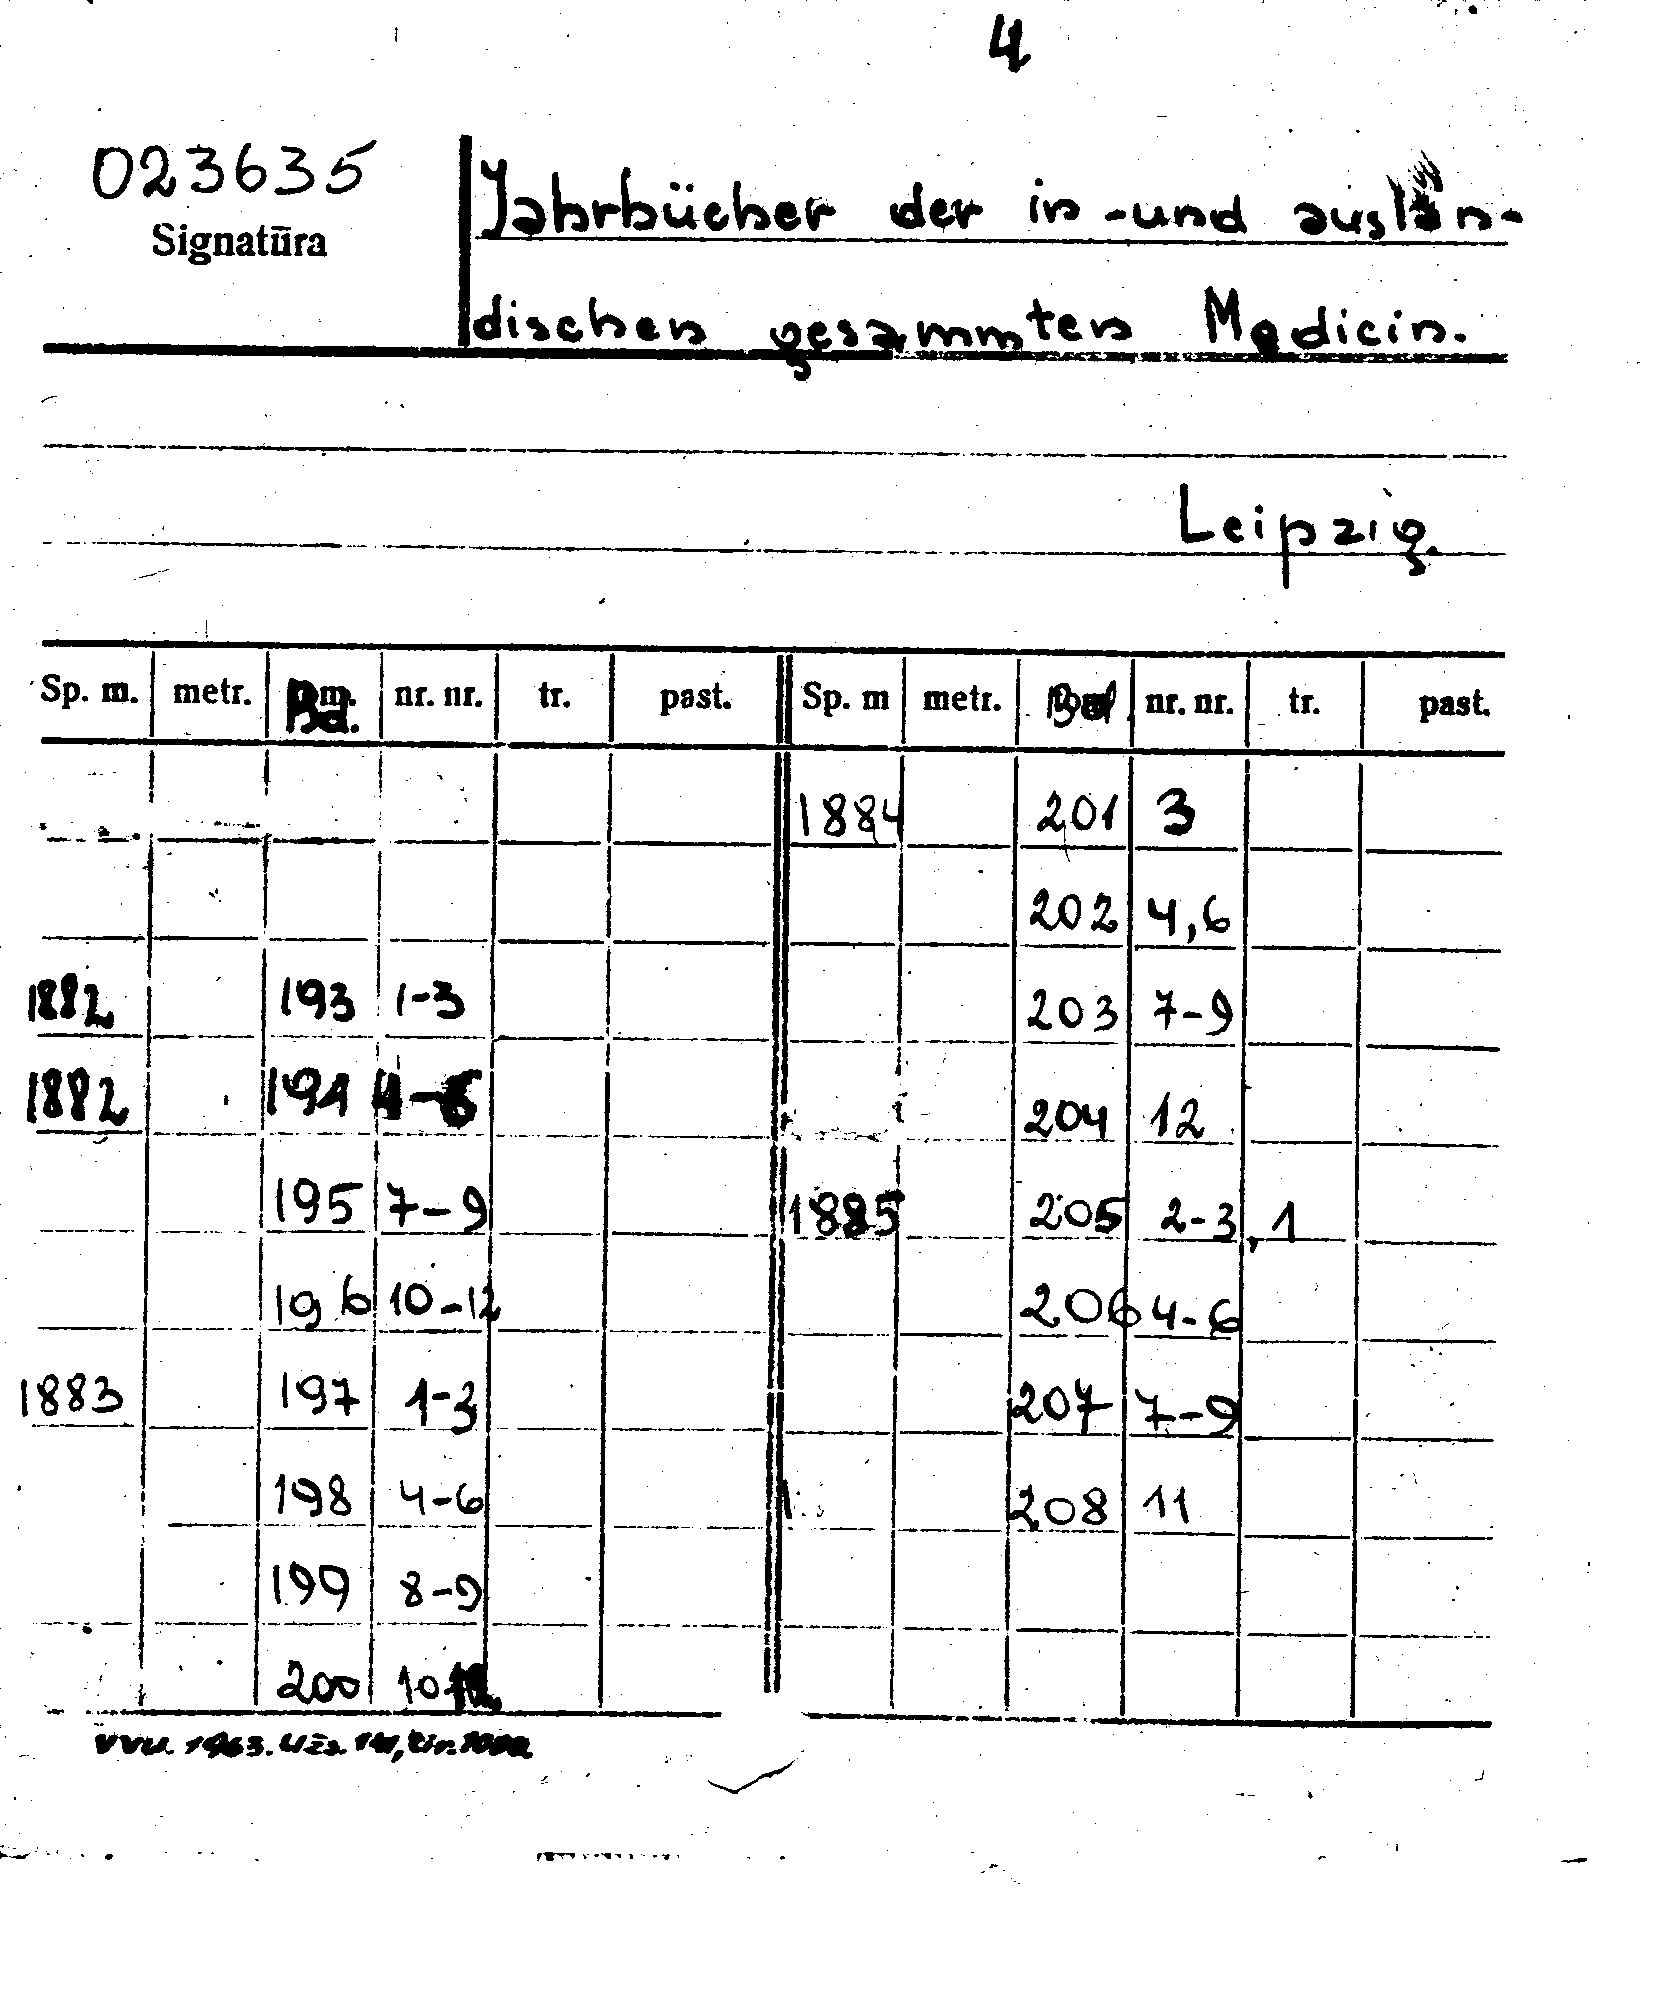 4
023635
Signatūra
Jahrbücher der in - und auslän-
dischen gesammten Medicin.
Leipzig.
Sp. m. metr. Bd. nr. nr. tr. past. Sp. m metr. Bd nr. nr. tr. past.
1884 201 3
202 4,6
1882 193 1-3 203 7-9
1882 194 4-6 204 12
195 7-9 1885 205 2-3, 1
196 10-12 206 4-6
1883 197 1-3 207 7-9
198 4-6 208 11
199 8-9
200 10-12
VVU. 1963. Užs.